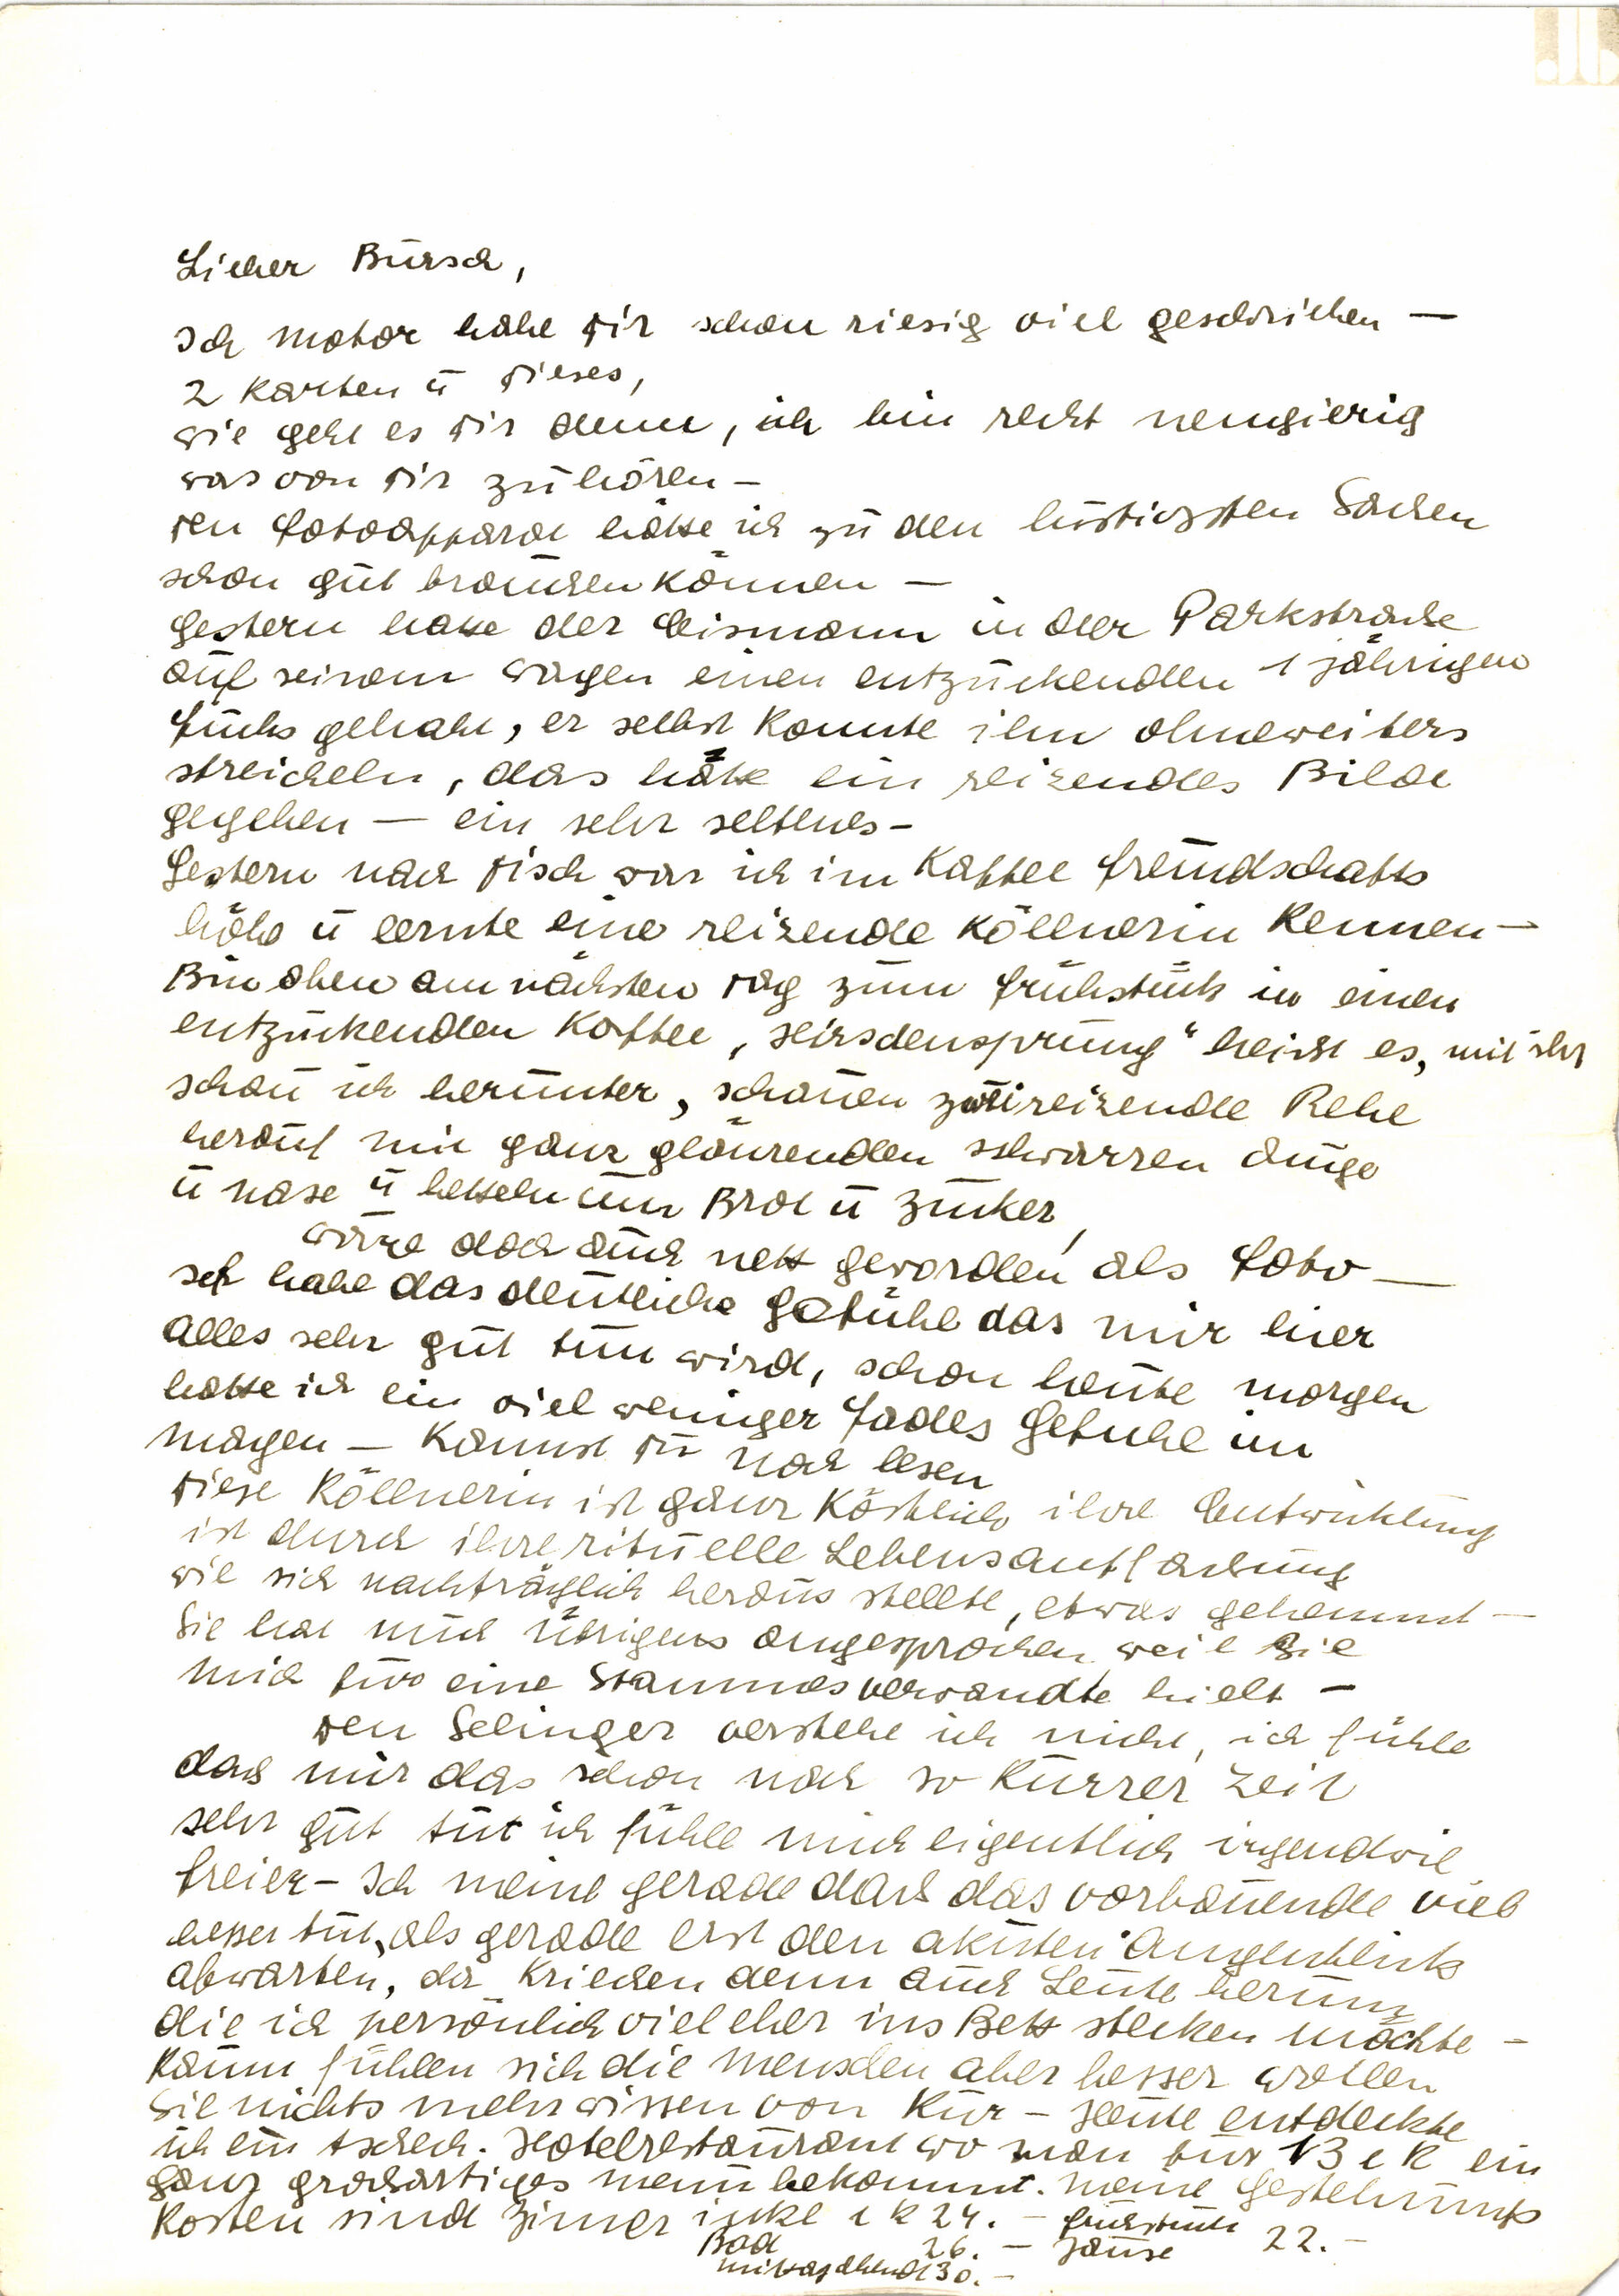 Lieber Bursch,
Ich Motor habe Dir schon riesig viel geschrieben —
2 Karten u Dieses,
wie geht es Dir denn, ich bin recht neugierig
was von Dir zuhören —
Den Fotoapparat hätte ich zu den lustigsten Sachen
schon gut brauchen können —
Gestern hatte der Eismann in der Parkstrasse
auf seinem Wagen einen entzückenden 1 jährigen
Fuchs gehabt, er selbst konnte ihn ohneweiters
streicheln, das hätte ein reizendes Bild
gegeben — ein sehr seltenes —
Gestern nach Tisch war ich im Kaffee Freundschafts
höhe u lernte eine reizende Köllnerin kennen —
Bin oben am nächsten Tag zum Frühstück in einen
entzückenden Kaffee „Hirschensprung" heisst es, mit ihr
schau ich herunter, schauen zwei reizende Rehe
herauf mit ganz glänzenden schwarzen Auge
u Nase u betteln um Brot u Zucker,
wäre doch auch nett geworden als Foto —
Ich habe das deutliche Gefühl das mir hier
alles sehr gut tun wird, schon heute morgen
hatte ich ein viel weniger fades Gefühl im
Magen — Kannst Du noch lesen
Diese Köllnerin ist ganz köstlich ihre Entwicklung
ist durch ihre rituelle Lebensauffassung
wie sich nachträglich heraus stellte, etwas gehemmt —
Sie hat mich übrigens angesprochen weil sie
mich für eine Stammesverwandte hielt —
Den Selinger verstehe ich nicht, ich fühle
dass mir das schon nach so kurzer Zeit
sehr gut tut ich fühle mich eigentlich irgendwie
freier — Ich meine gerade dass das vorbauende viel
besser tut, als gerade erst den akuten Augenblick
abwarten, da kriechen denn auch Leute herum
die ich persönlich viel eher ins Bett stecken möchte —
Kaum fühlen sich die Menschen aber besser wollen
sie nichts mehr wissen von Kur — Heute entdeckte
ich ein tschech. Hotelrestaurant wo man für 13 c K ein
ganz grossartiges Menu bekommt. Meine Gestehungs
kosten sind Zimer inkl c K 24. — Frühstück
Bad 26. — Jause 22. —
Mittag Abend 30. —